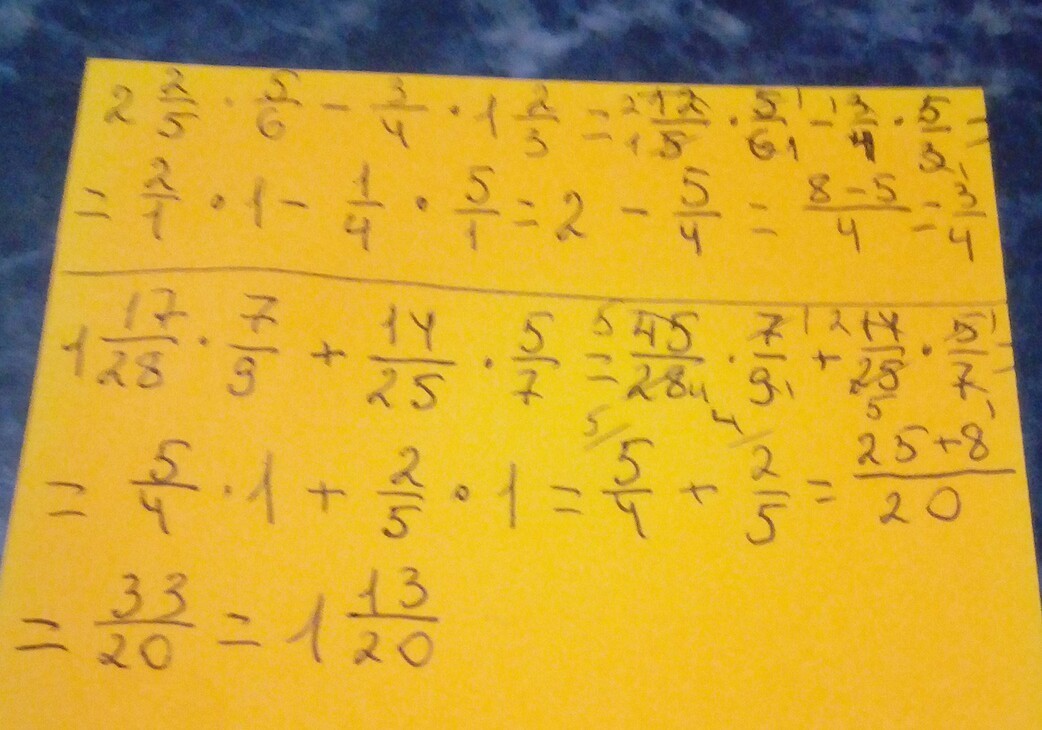 2 2/5 · 5/6 - 3/4 · 1 2/3 = 12/5 · 5/6 - 3/4 · 5/3 =
= 2/1 · 1 - 1/4 · 5/1 = 2 - 5/4 = (8-5)/4 = 3/4
1 17/28 · 7/9 + 14/25 · 5/7 = 45/28 · 7/9 + 14/25 · 5/7 =
= 5/4 · 1 + 2/5 · 1 = 5/4 + 2/5 = (25+8)/20
= 33/20 = 1 13/20